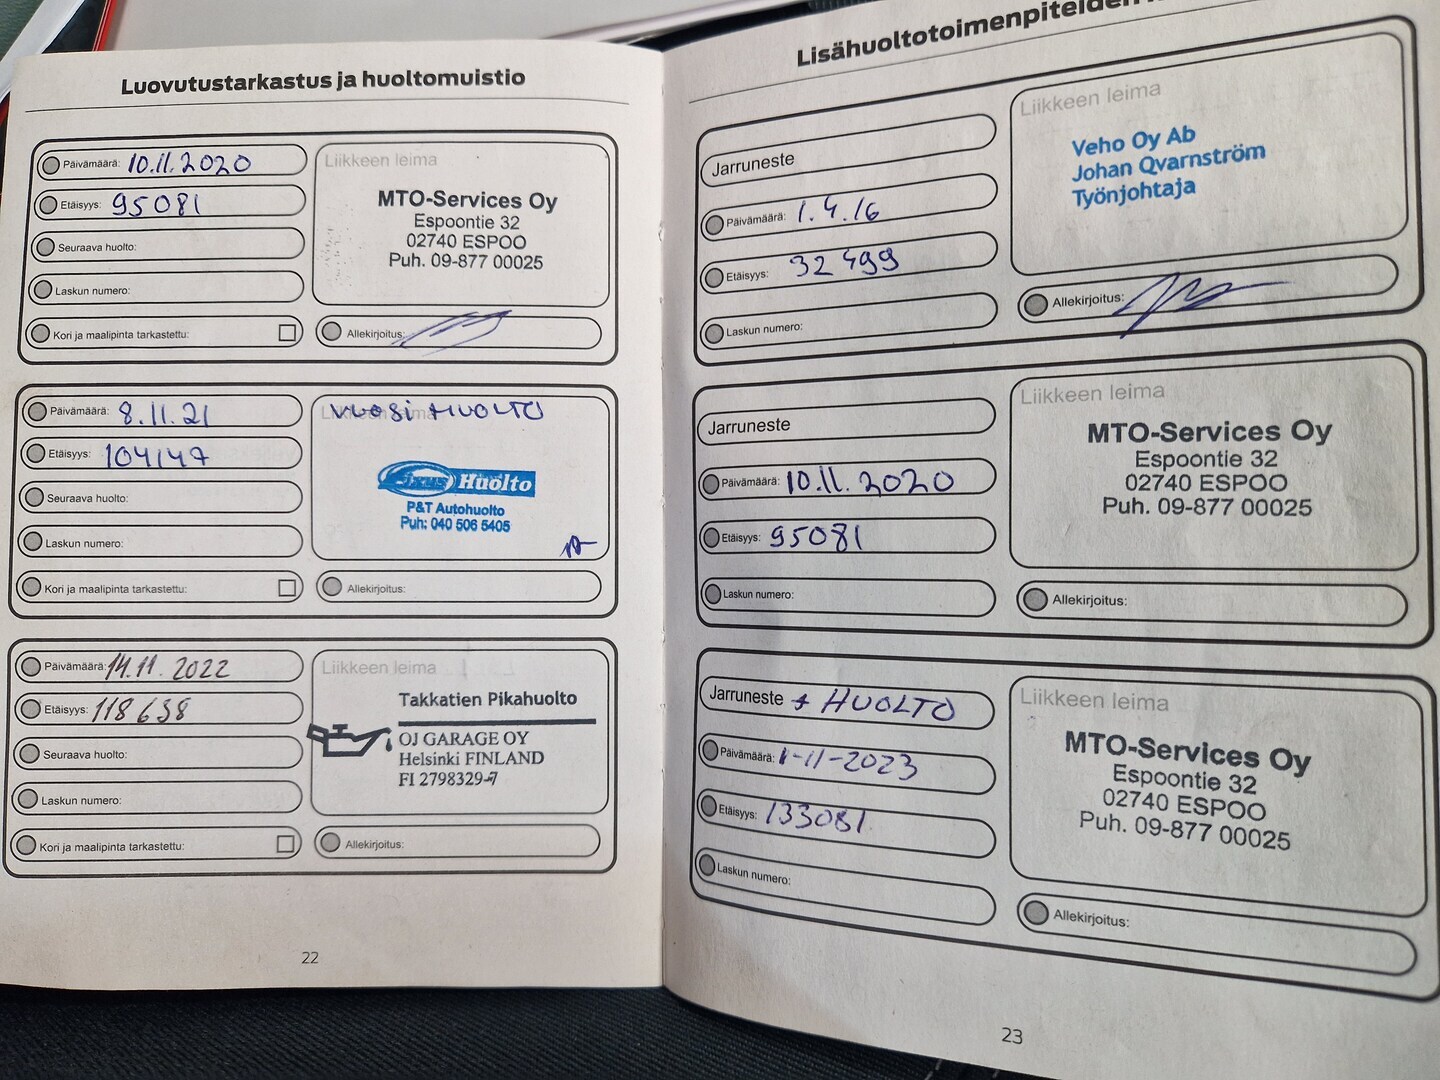 Luovutustarkastus ja huoltomuistio
Päivämäärä: 10.11.2020
Etäisyys: 95081
Seuraava huolto:
Laskun numero:
Kori ja maalipinta tarkastettu:
Liikkeen leima
MTO-Services Oy
Espoontie 32
02740 ESPOO
Puh. 09-877 00025
Allekirjoitus:
Päivämäärä: 8.11.21
Etäisyys: 104147
Seuraava huolto:
Laskun numero:
Kori ja maalipinta tarkastettu:
Liikkeen leima
VUOSI HUOLTO
Fixus Huolto
P&T Autohuolto
Puh: 040 506 5405
Allekirjoitus:
Päivämäärä: 14.11.2022
Etäisyys: 118638
Seuraava huolto:
Laskun numero:
Kori ja maalipinta tarkastettu:
Liikkeen leima
Takkatien Pikahuolto
OJ GARAGE OY
Helsinki FINLAND
FI 2798329-7
Allekirjoitus:
22
Lisähuoltotoimenpiteiden
Jarruneste
Päivämäärä: 1.4.16
Etäisyys: 32499
Laskun numero:
Liikkeen leima
Veho Oy Ab
Johan Qvarnström
Työnjohtaja
Allekirjoitus:
Jarruneste
Päivämäärä: 10.11.2020
Etäisyys: 95081
Laskun numero:
Liikkeen leima
MTO-Services Oy
Espoontie 32
02740 ESPOO
Puh. 09-877 00025
Allekirjoitus:
Jarruneste + HUOLTO
Päivämäärä: 1-11-2023
Etäisyys: 133081
Laskun numero:
Liikkeen leima
MTO-Services Oy
Espoontie 32
02740 ESPOO
Puh. 09-877 00025
Allekirjoitus:
23